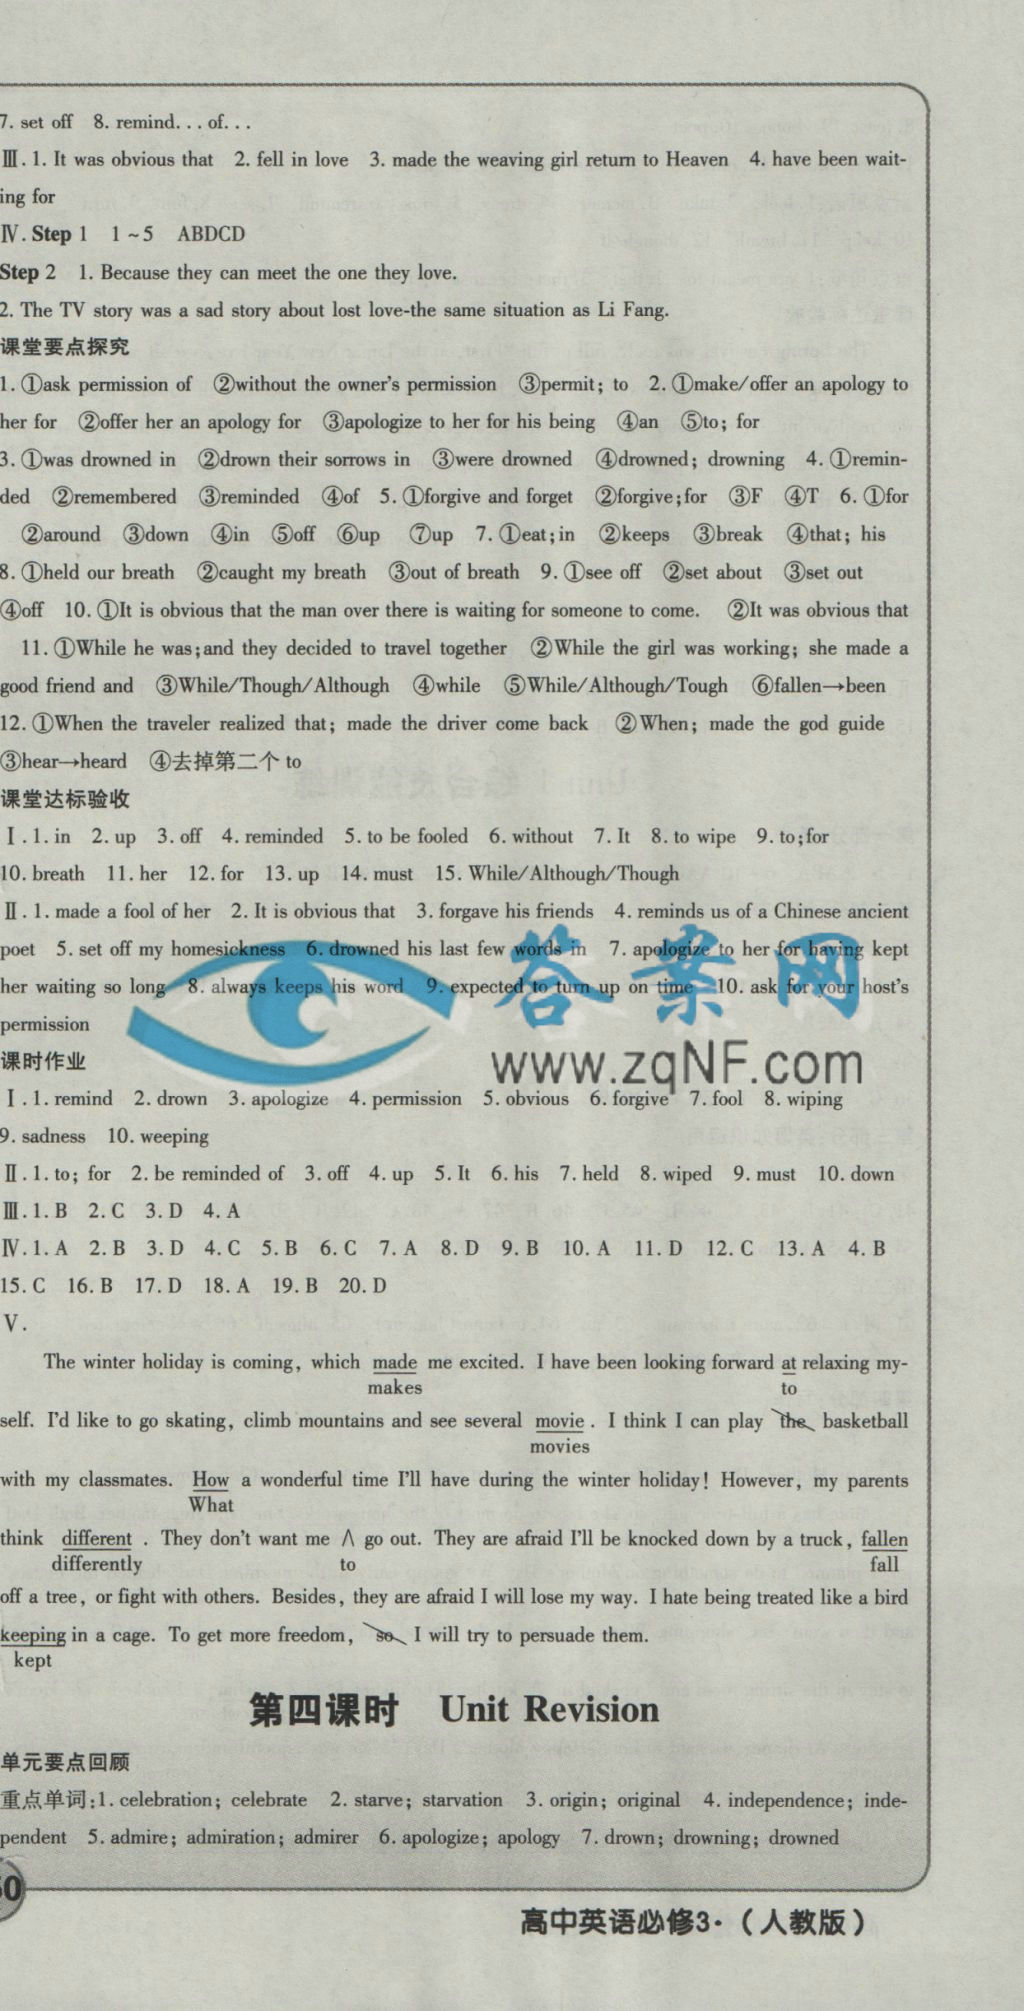 7. set off 8. remind...of...
Ⅲ. 1. It was obvious that 2. fell in love 3. made the weaving girl return to Heaven 4. have been wait-
ing for
Ⅳ. Step 1 1~5 ABDCD
Step 2 1. Because they can meet the one they love.
2. The TV story was a sad story about lost love-the same situation as Li Fang.
课堂要点探究
1. ①ask permission of ②without the owner's permission ③permit; to 2. ①make/offer an apology to
her for ②offer her an apology for ③apologize to her for his being ④an ⑤to; for
3. ①was drowned in ②drown their sorrows in ③were drowned ④drowned; drowning 4. ①remin-
ded ②remembered ③reminded ④of 5. ①forgive and forget ②forgive;for ③F ④T 6. ①for
②around ③down ④in ⑤off ⑥up ⑦up 7. ①eat;in ②keeps ③break ④that; his
8. ①held our breath ②caught my breath ③out of breath 9. ①see off ②set about ③set out
④off 10. ①It is obvious that the man over there is waiting for someone to come. ②It was obvious that
11. ①While he was;and they decided to travel together ②While the girl was working; she made a
good friend and ③While/Though/Although ④while ⑤While/Although/Tough ⑥fallen→been
12. ①When the traveler realized that; made the driver come back ②When; made the god guide
③hear→heard ④去掉第二个 to
课堂达标验收
Ⅰ. 1. in 2. up 3. off 4. reminded 5. to be fooled 6. without 7. It 8. to wipe 9. to;for
10. breath 11. her 12. for 13. up 14. must 15. While/Although/Though
Ⅱ. 1. made a fool of her 2. It is obvious that 3. forgave his friends 4. reminds us of a Chinese ancient
poet 5. set off my homesickness 6. drowned his last few words in 7. apologize to her for having kept
her waiting so long 8. always keeps his word 9. expected to turn up on time 10. ask for your host's
permission
答案网
www.zqNF.com
课时作业
Ⅰ. 1. remind 2. drown 3. apologize 4. permission 5. obvious 6. forgive 7. fool 8. wiping
9. sadness 10. weeping
Ⅱ. 1. to; for 2. be reminded of 3. off 4. up 5. It 6. his 7. held 8. wiped 9. must 10. down
Ⅲ. 1. B 2. C 3. D 4. A
Ⅳ. 1. A 2. B 3. D 4. C 5. B 6. C 7. A 8. D 9. B 10. A 11. D 12. C 13. A 4. B
15. C 16. B 17. D 18. A 19. B 20. D
Ⅴ.
The winter holiday is coming, which made me excited. I have been looking forward at relaxing my-
makes to
self. I'd like to go skating, climb mountains and see several movie. I think I can play the basketball
movies
with my classmates. How a wonderful time I'll have during the winter holiday! However, my parents
What
think different. They don't want me ∧ go out. They are afraid I'll be knocked down by a truck, fallen
differently to fall
off a tree, or fight with others. Besides, they are afraid I will lose my way. I hate being treated like a bird
keeping in a cage. To get more freedom, so I will try to persuade them.
kept
第四课时 Unit Revision
单元要点回顾
重点单词:1. celebration; celebrate 2. starve; starvation 3. origin; original 4. independence; inde-
pendent 5. admire; admiration; admirer 6. apologize; apology 7. drown; drowning; drowned
高中英语必修3·(人教版)